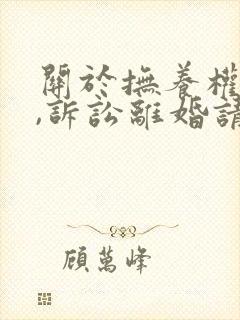 關於撫養權
,訴訟離婚請
顧萬峰